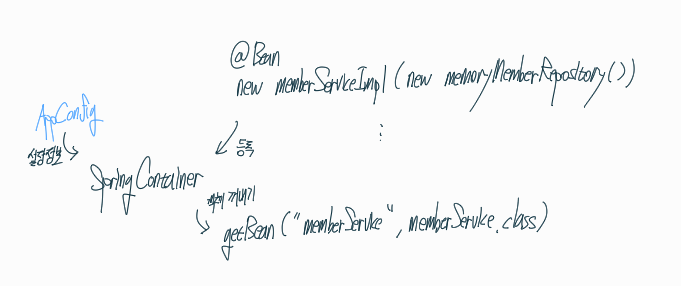 @Bean
new memberServiceImpl (new memoryMemberRepository())
AppConfig
설정정보
등록
SpringContainer
객체 꺼내기
getBean("memberService", memberService.class)